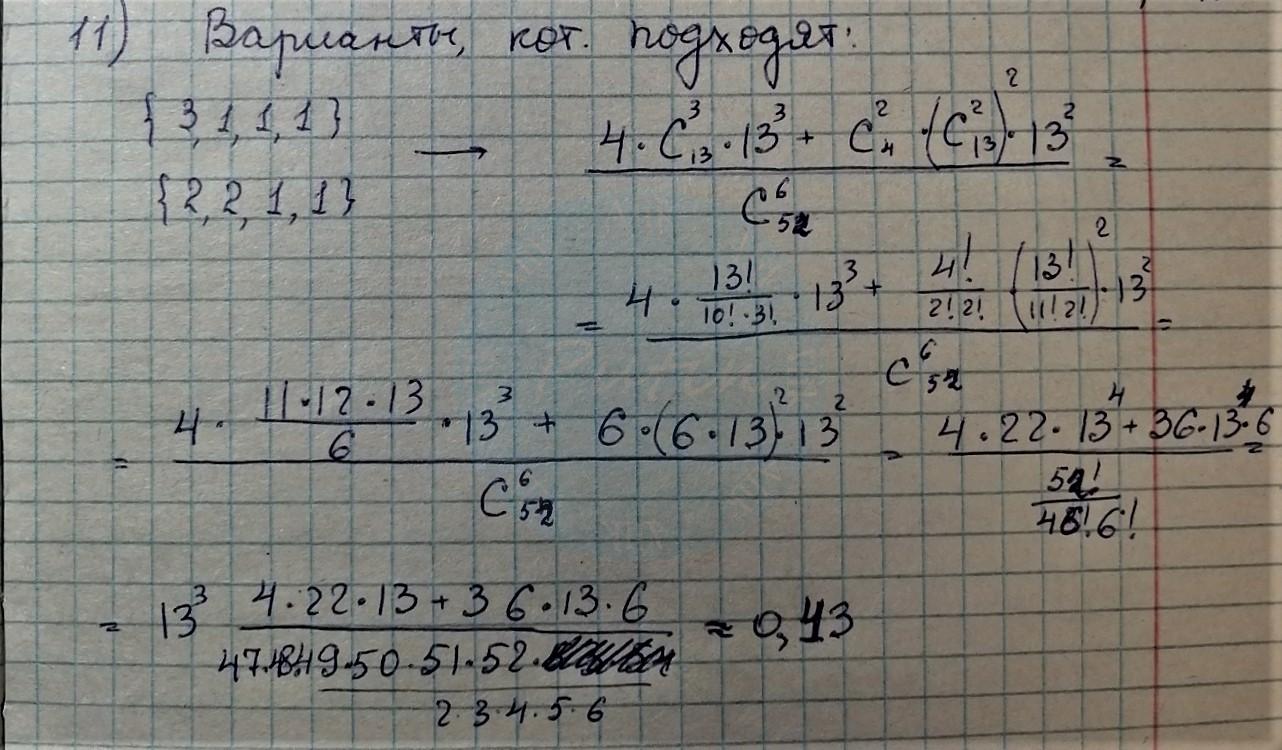 11) Варианты, кот. подходят:
{3,1,1,1}
{2,2,1,1}
→ (4·C₁₃³·13³ + C₄²·(C₁₃²)²·13²) / C₅₂⁶ =
= (4·13!/(10!·3!)·13³ + 4!/(2!2!)·(13!/(11!2!))²·13²) / C₅₂⁶ =
= (4·(11·12·13)/6·13³ + 6·(6·13)²·13²) / C₅₂⁶ = (4·22·13⁴ + 36·13⁴·6) / (52!/(46!6!)) =
= 13³ (4·22·13 + 36·13·6) / (47·48·49·50·51·52 / 2·3·4·5·6) ≈ 0,43